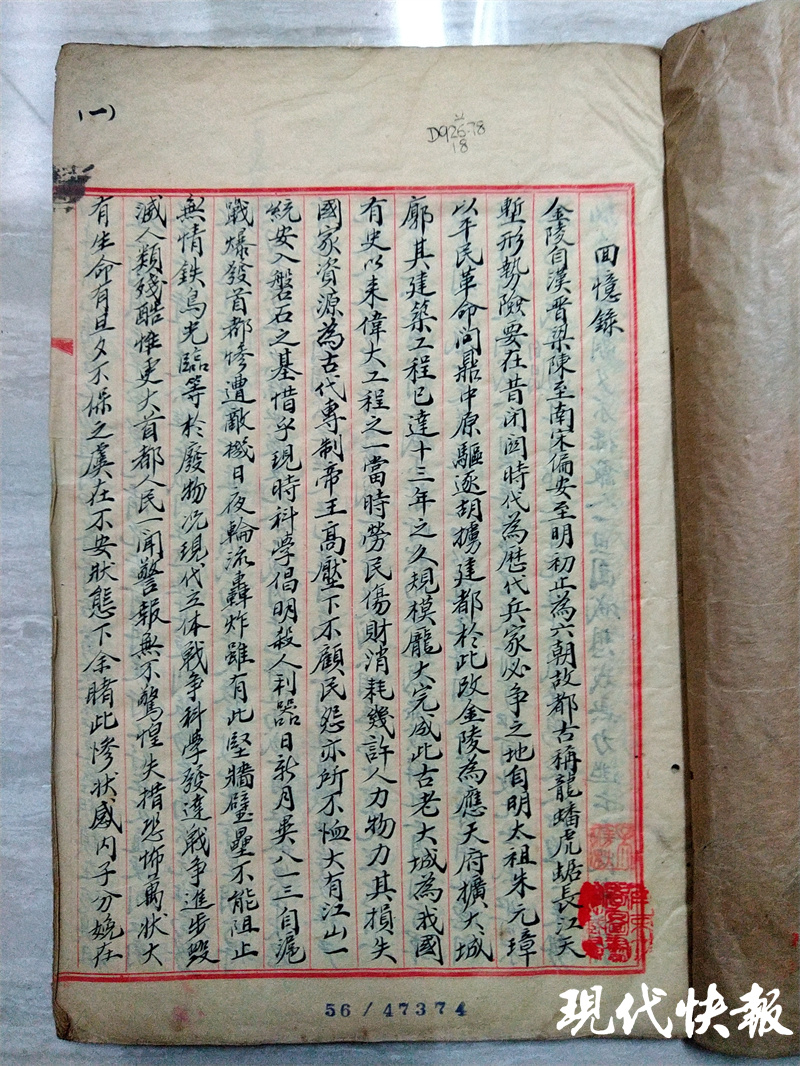 (一)
D926.78
18
回憶錄
金陵自漢晋梁陳至南宋偏安至明初止為六朝故都古稱龍蟠虎踞長江天
塹形勢險要在昔闭関時代為歴代兵家必爭之地自明太祖朱元璋
以平民革命问鼎中原驅逐胡擄建都於此改金陵為應天府擴大城
廓其建築工程已達十三年之久規模龐大完成此古老大城為我國
有史以来偉大工程之一當時勞民傷財消耗幾許人力物力其損失
國家資源為古代專制帝王高壓下不顧民怨亦所不恤大有江山一
統安入磐石之基惜乎現時科學倡明殺人利器日新月異八一三自滬
戰爆發首都慘遭敵機日夜輪流轟炸雖有此堅牆壁壘不能阻止
無情鉄鳥光臨等於廢物况現代立体戰争科學發達戰争進步毀
滅人類殘酷惟更大首都人民一聞警報無不驚惶失措恐怖萬状大
有生命有旦夕不保之虞在不安狀態下余睹此慘状感内子分娩在
56/47374
現代快報